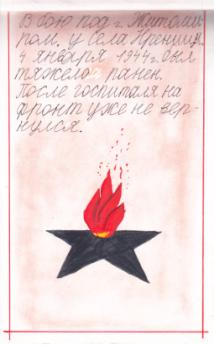 В бою под г. Житоми-
ром, у села Кренищи
4 января 1944 г. был
тяжело ранен.
После госпиталя на
фронт уже не вер-
нулся.